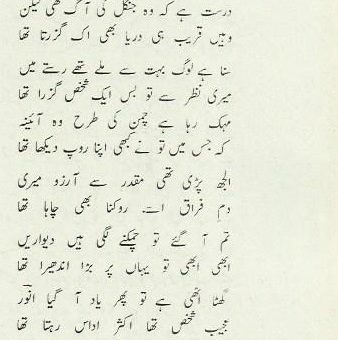 درست ہے کہ وہ جنگل کی آگ تھی لیکن
وہیں قریب ہی دریا بھی اک گزرتا تھا
سنا ہے لوگ بہت سے ملے تھے رستے میں
میری نظر سے تو بس ایک شخص گزرا تھا
مہک رہا ہے چمن کی طرح وہ آئینہ
کہ جس میں تو نے کبھی اپنا روپ دیکھا تھا
الجھ پڑی تھی مقدر سے آرزو میری
دمِ فراق اسے روکنا بھی چاہا تھا
تم آ گئے تو چمکنے لگی ہیں دیواریں
ابھی ابھی تو یہاں پر بڑا اندھیرا تھا
گھٹا اٹھی ہے تو پھر یاد آ گیا انورؔ
عجیب شخص تھا اکثر اداس رہتا تھا